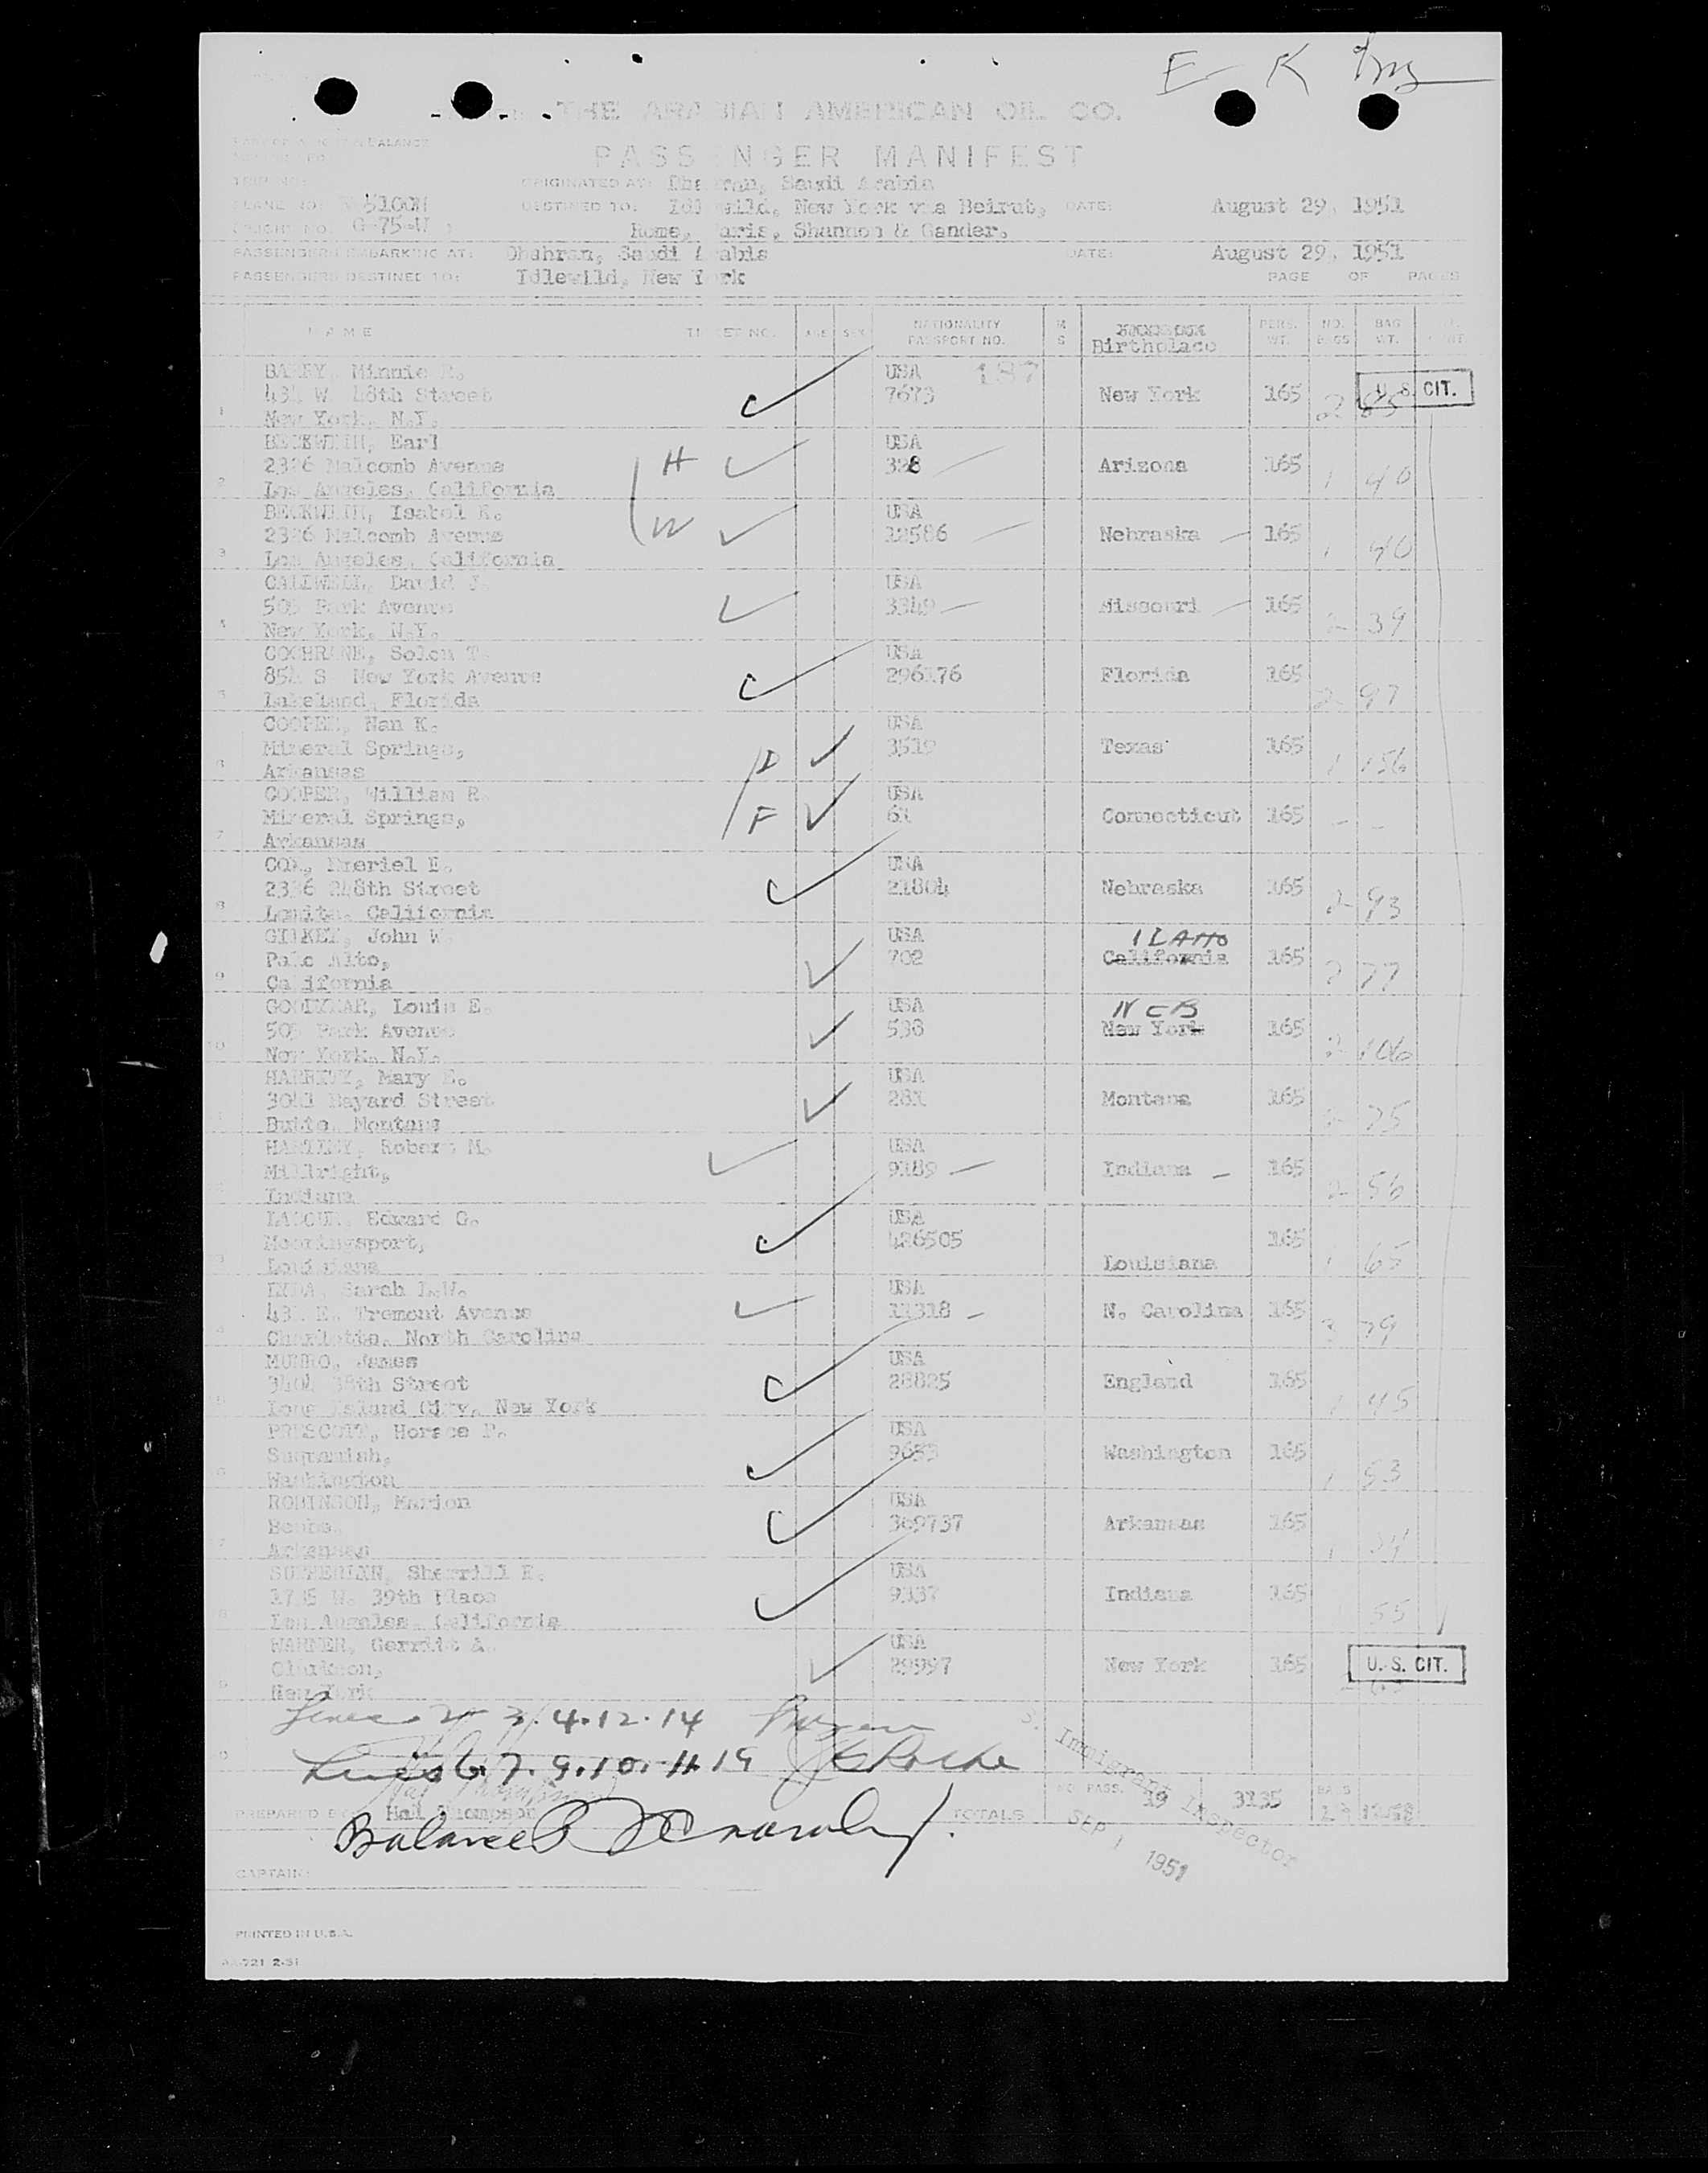 E K
THE ARABIAN AMERICAN OIL CO.
PASSENGER MANIFEST
TRIP NO. ORIGINATED AT: Dhahran, Saudi Arabia
PLANE NO. 5100N DESTINED TO: Idlewild, New York via Beirut, DATE: August 29, 1951
Rome, Paris, Shannon & Gander.
PASSENGERS EMBARKING AT: Dhahran, Saudi Arabia DATE: August 29, 1951
PASSENGERS DESTINED TO: Idlewild, New York PAGE OF PAGES
NAME TICKET NO. AGE SEX NATIONALITY PASSPORT NO. M S Birthplace PERS. WT. NO. PCGS BAG WT.
BARRY, Minnie USA 187
W. 48th Street 7673 New York 165 2 85 U.S. CIT.
1 New York, N.Y.
BECKWITH, Earl USA
2326 Malcomb Avenue H 328 Arizona 165 1 40
2 Los Angeles, California
BECKWITH, Isabel K. USA
2326 Malcomb Avenue W 12586 Nebraska 165 1 40
3 Los Angeles, California
CALDWELL, David J. USA
505 Park Avenue 3349 Missouri 165 2 39
4 New York, N.Y.
COCHRANE, Solon T. USA
854 S New York Avenue 296176 Florida 165 2 97
5 Lakeland, Florida
COOPER, Nan K. USA
Mineral Springs, D 3519 Texas 165 1 156
6 Arkansas
COOPER, William R. USA
Mineral Springs, F 61 Connecticut 165 - -
7 Arkansas
COX, E. USA
2336 248th Street 21804 Nebraska 165 2 93
8 Lomita, California
GILKEY, John W. USA IDAHO
Palo Alto, 702 California 165 2 77
9 California
GOODYEAR, Louis E. USA NEB
505 Park Avenue 538 New York 165 2 106
10 New York, N.Y.
Mary E. USA
3041 Bayard Street 281 Montana 165 2 75
Butte, Montana
HARTLEY, Robert M. USA
Millright, 9189 Indiana 165 2 56
Indiana
Edward G. USA
Mooringsport, 426505 165 1 65
Louisiana Louisiana
Sarah L.W. USA
E. Tremont Avenue 11318 N. Carolina 165 3 79
Charlotte, North Carolina
MUNRO, James USA
3404 38th Street 28825 England 165 1 45
Long Island City, New York
PRESCOTT, Horace P. USA
Suquamish, 9653 Washington 165 1 53
Washington
ROBINSON, Marion USA
369737 Arkansas 165 1 34
Arkansas
Sherrill R. USA
1735 W. 39th Place 9137 Indiana 165 55
Los Angeles, California
WARNER, Gerritt A. USA
Clarkson, 29997 New York 165 U.S. CIT.
New York
Lines 2 3.4.12.14
Lines 6.7.9.10.11.19 Roche
Immigrant Inspector
SEP 1 1951
PREPARED BY: Hal Thompson TOTALS NO. PASS. 19 3135 BAGS
Balance
CAPTAIN:
PRINTED IN U.S.A.
721 2-51